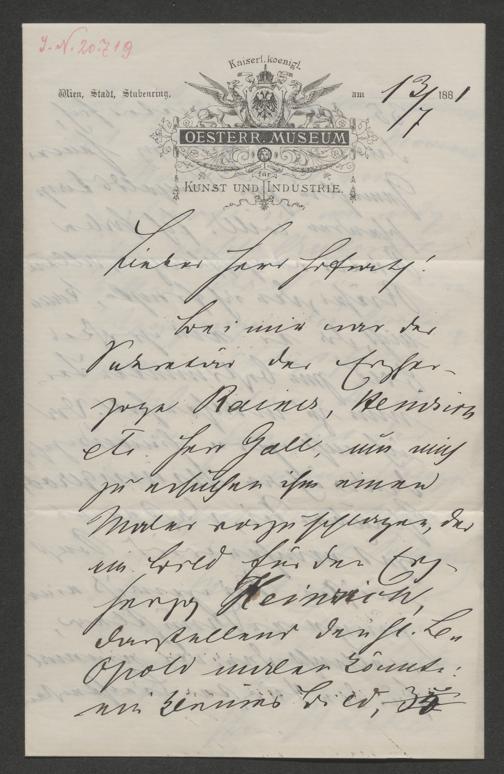 J. N. 20.719
Kaiserl. koenigl.
Wien, Stadt, Stubenring. am 13/7 1881
OESTERR. MUSEUM
FÜR
KUNST UND INDUSTRIE.
Lieber Herr Hofrath!
bei mir war der
Sekretär der Erzher-
zoge Rainer, Heinrich
etc. Herr Gall, um mich
zu ersuchen ihm einen
Maler vorzuschlagen, der
ein Bild für den Erz-
herzog Heinrich,
darstellend den hl. Le-
opold malen könnte:
ein kleines Bild,